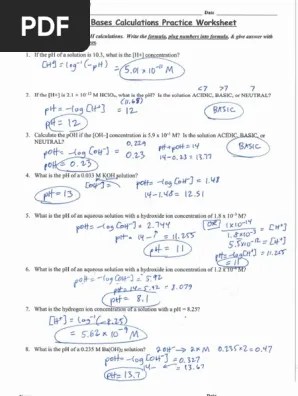 PDF
Date
Bases Calculations Practice Worksheet
pH calculations. Write the formula, plug numbers into formula, & give answer with
1. If the pH of a solution is 10.3, what is the [H+] concentration?
[H⁺] = log⁻¹(-pH) = 5.01 x 10⁻¹¹ M
<7 >7 7
2. If the [H+] is 2.1 x 10⁻¹² M HClO₄, what is the pH? Is the solution ACIDIC, BASIC, or NEUTRAL?
pH = -log[H⁺] = 12
BASIC
pH = 12
3. Calculate the pOH if the [OH-] concentration is 5.9 x 10⁻¹ M? Is the solution ACIDIC, BASIC, or
NEUTRAL?
0.229
pOH = -log[OH⁻] = 0.23
pH+pOH=14
14-0.23=13.77
BASIC
pOH = 0.23
4. What is the pH of a 0.033 M KOH solution?
pOH = -log[OH⁻] = 1.48
14-1.48 = 12.51
pH = 13
5. What is the pH of an aqueous solution with a hydroxide ion concentration of 1.8 x 10⁻³ M?
pOH = -log[OH⁻] = 2.744
OR
1x10⁻¹⁴
1.8x10⁻³ = [H⁺]
5.5x10⁻¹² = [H⁺]
= 11.255
pH = -log[H⁺] = 11.255
pH = 11
= 11
6. What is pH of an aqueous solution with a hydroxide ion concentration of 1.2 x 10⁻⁶ M?
pOH = -log[OH⁻] = 5.92
pH = 14 - 5.92 = 8.079
pH = 8.1
7. What is the hydrogen ion concentration of a solution with a pH = 8.25?
[H⁺] = log⁻¹(-8.25)
= 5.62 x 10⁻⁹ M
8. What is the pH of a 0.235 M Ba(OH)₂ solution?
2OH⁻ → 2xM
0.235x2=0.47
pOH = -log[OH⁻] = 0.327
14 - = 13.67
pH = 13.7